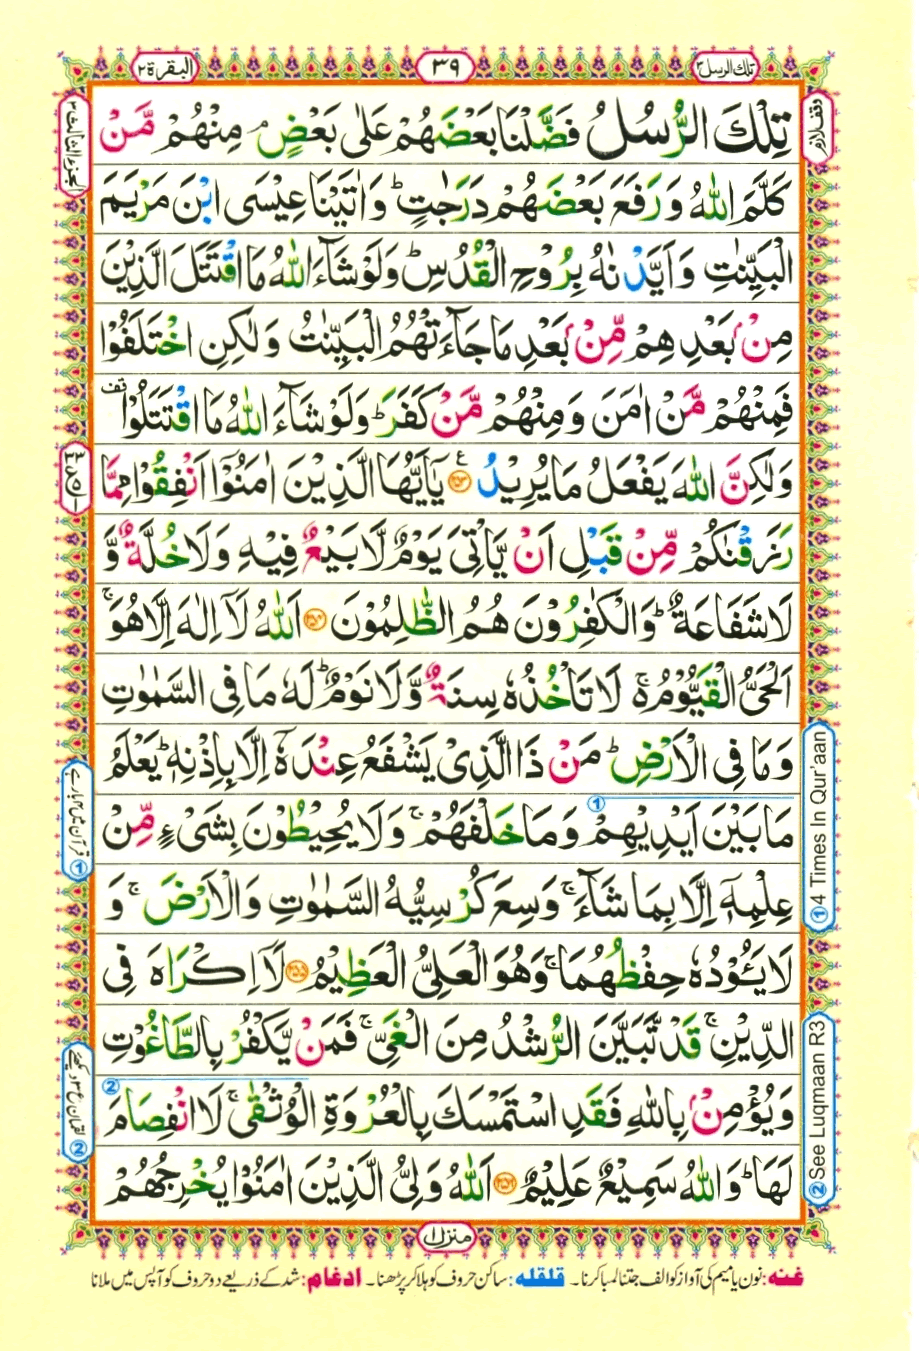 البقرة ٢
٣٩
تلك الرسل ٣
وقف لازم
الجزء الثالث ٣
تِلْكَ الرُّسُلُ فَضَّلْنَا بَعْضَهُمْ عَلٰى بَعْضٍ ۘ مِنْهُمْ مَّنْ
كَلَّمَ اللّٰهُ وَ رَفَعَ بَعْضَهُمْ دَرَجٰتٍ ؕ وَ اٰتَيْنَا عِيْسَى ابْنَ مَرْيَمَ
الْبَيِّنٰتِ وَ اَيَّدْنٰهُ بِرُوْحِ الْقُدُسِ ؕ وَ لَوْ شَآءَ اللّٰهُ مَا اقْتَتَلَ الَّذِيْنَ
مِنْۢ بَعْدِ هِمْ مِّنْۢ بَعْدِ مَا جَآءَتْهُمُ الْبَيِّنٰتُ وَ لٰكِنِ اخْتَلَفُوْا
فَمِنْهُمْ مَّنْ اٰمَنَ وَ مِنْهُمْ مَّنْ كَفَرَ ؕ وَ لَوْ شَآءَ اللّٰهُ مَا اقْتَتَلُوْا ۟
وَ لٰكِنَّ اللّٰهَ يَفْعَلُ مَا يُرِيْدُ ﴿۲۵۳﴾ يٰۤاَيُّهَا الَّذِيْنَ اٰمَنُوْۤا اَنْفِقُوْا مِمَّا
رَزَقْنٰكُمْ مِّنْ قَبْلِ اَنْ يَّاْتِىَ يَوْمٌ لَّا بَيْعٌ فِيْهِ وَ لَا خُلَّةٌ وَّ
لَا شَفَاعَةٌ ؕ وَ الْكٰفِرُوْنَ هُمُ الظّٰلِمُوْنَ ﴿۲۵۴﴾ اَللّٰهُ لَاۤ اِلٰهَ اِلَّا هُوَ ۚ
اَلْحَىُّ الْقَيُّوْمُ ۚ۬ لَا تَاْخُذُهٗ سِنَةٌ وَّ لَا نَوْمٌ ؕ لَهٗ مَا فِى السَّمٰوٰتِ
وَ مَا فِى الْاَرْضِ ؕ مَنْ ذَا الَّذِىْ يَشْفَعُ عِنْدَهٗۤ اِلَّا بِاِذْنِهٖ ؕ يَعْلَمُ
مَا بَيْنَ اَيْدِيْهِمْ وَ مَا خَلْفَهُمْ ۚ وَ لَا يُحِيْطُوْنَ بِشَىْءٍ مِّنْ
عِلْمِهٖۤ اِلَّا بِمَا شَآءَ ۚ وَسِعَ كُرْسِيُّهُ السَّمٰوٰتِ وَ الْاَرْضَ ۚ وَ
لَا يَـُٔوْدُهٗ حِفْظُهُمَا ۚ وَ هُوَ الْعَلِىُّ الْعَظِيْمُ ﴿۲۵۵﴾ لَاۤ اِكْرَاهَ فِى
الدِّيْنِ ۚ قَدْ تَّبَيَّنَ الرُّشْدُ مِنَ الْغَىِّ ۚ فَمَنْ يَّكْفُرْ بِالطَّاغُوْتِ
وَ يُؤْمِنْۢ بِاللّٰهِ فَقَدِ اسْتَمْسَكَ بِالْعُرْوَةِ الْوُثْقٰى ۚ لَا انْفِصَامَ
لَهَا ؕ وَ اللّٰهُ سَمِيْعٌ عَلِيْمٌ ﴿۲۵۶﴾ اَللّٰهُ وَلِىُّ الَّذِيْنَ اٰمَنُوْا يُخْرِجُهُمْ
① 4 Times In Qur'aan
② See Luqmaan R3
منزل ۱
غنه: نون یا میم کی آواز کو الف جتنا لمبا کرنا۔ قلقله: ساکن حروف کو ہلا کر پڑھنا۔ ادغام: شد کے ذریعے دو حروف کو آپس میں ملانا